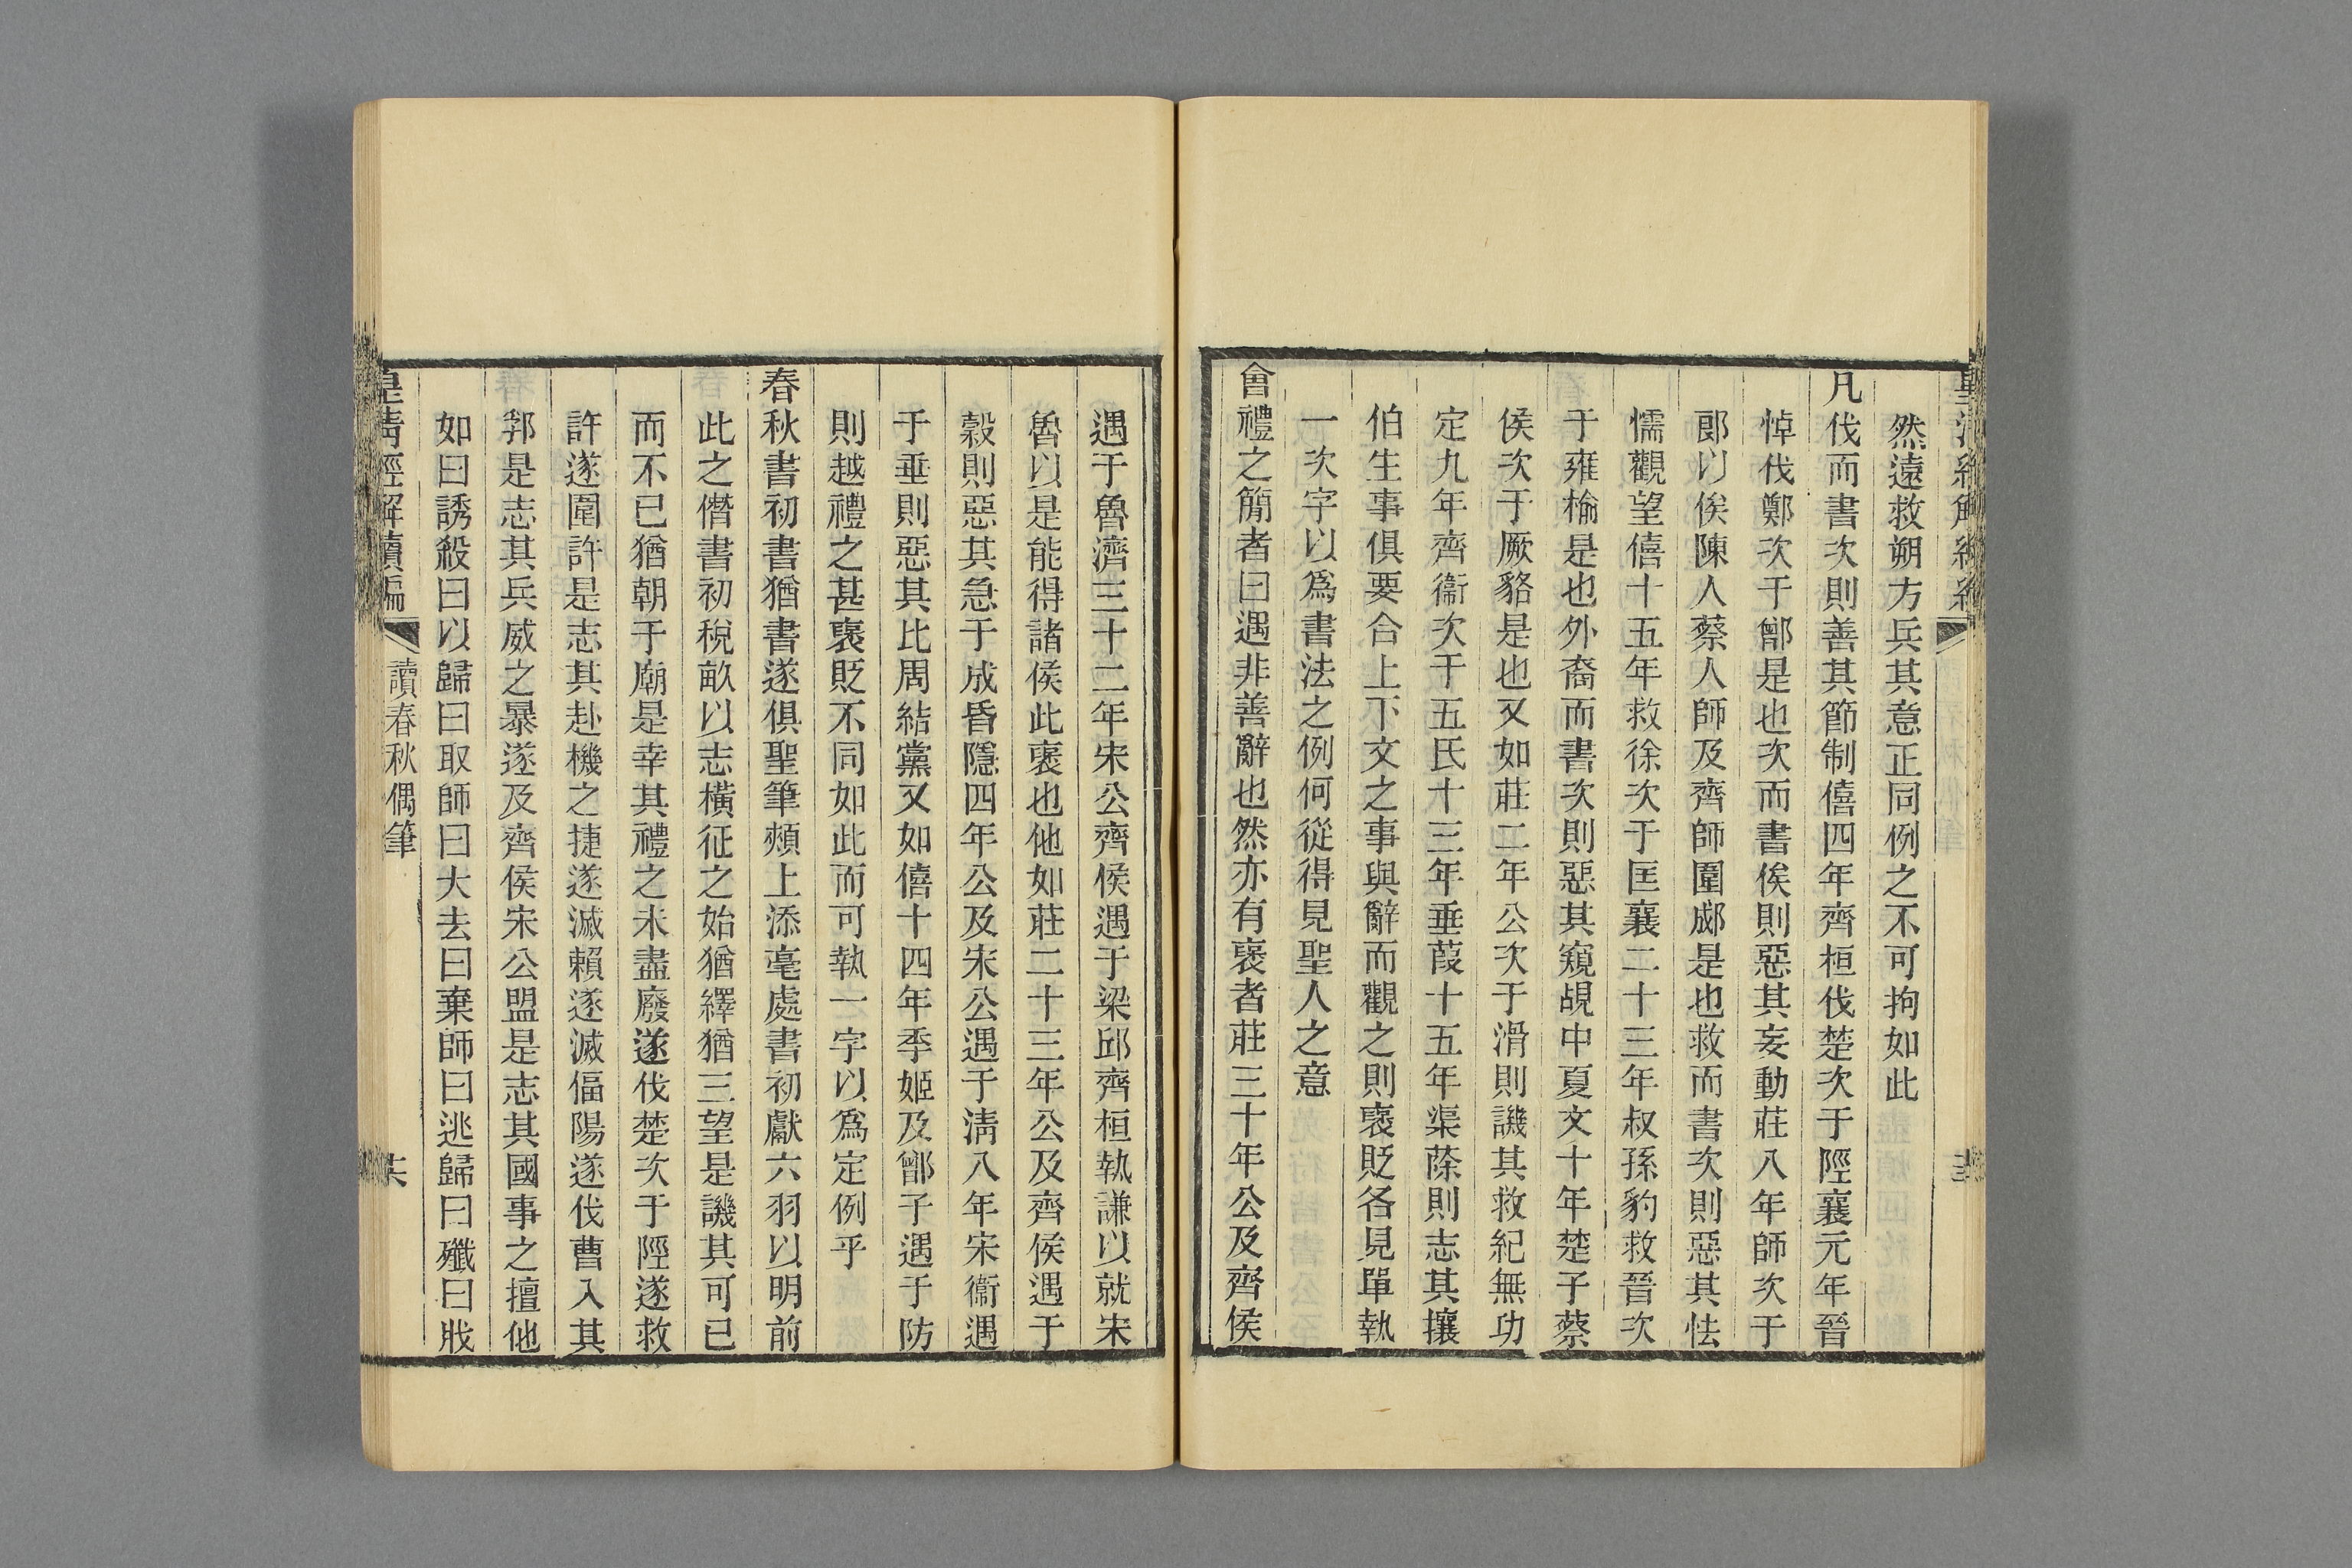 然遠救朔方兵其意正同例之不可拘如此
凡伐而書次則善其節制僖四年齊桓伐楚次于陘襄元年晉
悼伐鄭次于鄫是也次而書俟則惡其妄動莊八年師次于
郎以俟陳人蔡人師及齊師圍郕是也救而書次則惡其怯
懦觀望僖十五年救徐次于匡襄二十三年叔孫豹救晉次
于雍榆是也外裔而書次則惡其窺覘中夏文十年楚子蔡
侯次于厥貉是也又如莊二年公次于滑則譏其救紀無功
定九年齊衞次于五氏十三年垂葭十五年渠蒢則志其攘
伯生事俱要合上下文之事與辭而觀之則褒貶各見單執
一次字以爲書法之例何從得見聖人之意
會禮之簡者曰遇非善辭也然亦有褒者莊三十年公及齊侯
遇于魯濟三十二年宋公齊侯遇于梁邱齊桓執謙以就宋
魯以是能得諸侯此褒也他如莊二十三年公及齊侯遇于
穀則惡其急于成昏隱四年公及宋公遇于淸八年宋衞遇
于垂則惡其比周結黨又如僖十四年季姬及鄫子遇于防
則越禮之甚褒貶不同如此而可執一字以爲定例乎
春秋書初書猶書遂俱聖筆頰上添毫處書初獻六羽以明前
此之僭書初稅畝以志橫征之始猶繹猶三望是譏其可已
而不已猶朝于廟是幸其禮之未盡廢遂伐楚次于陘遂救
許遂圍許是志其赴機之捷遂滅賴遂滅偪陽遂伐曹入其
郛是志其兵威之暴遂及齊侯宋公盟是志其國事之擅他
如曰誘殺曰以歸曰取師曰大去曰棄師曰逃歸曰殲曰戕
皇淸經解續編
讀春秋偶筆